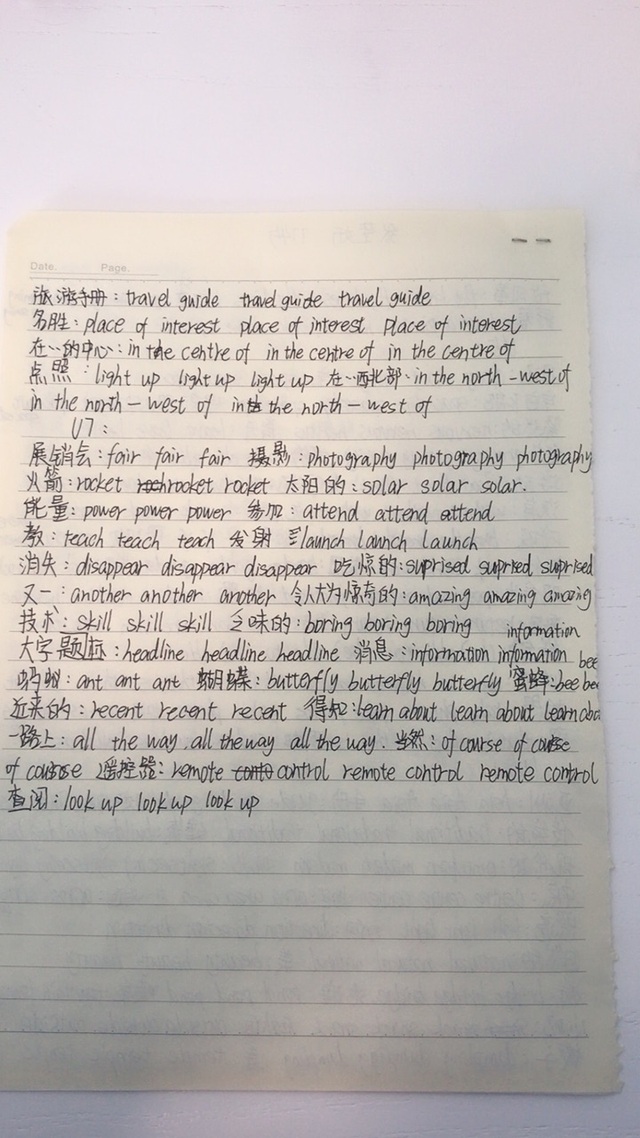 Date. Page.
旅游手册：travel guide travel guide travel guide
名胜：place of interest place of interest place of interest
在…的中心：in the centre of in the centre of in the centre of
点照：light up light up light up 在…西北部：in the north-west of
in the north-west of in the north-west of
U7：
展销会：fair fair fair 摄影：photography photography photography
火箭：rocket rocket rocket 太阳的：solar solar solar.
能量：power power power 参加：attend attend attend
教：teach teach teach 发射：launch launch launch
消失：disappear disappear disappear 吃惊的：suprised suprised suprised
又一：another another another 令人大为惊奇的：amazing amazing amazing
技术：skill skill skill 乏味的：boring boring boring information
大字题标：headline headline headline 消息：information information bee
蚂蚁：ant ant ant 蝴蝶：butterfly butterfly butterfly 蜜蜂：bee bee
近来的：recent recent recent 得知：learn about learn about learn abo
一路上：all the way. all the way all the way. 当然：of course of course
of course 遥控器：remote control remote control remote control
查阅：look up look up look up